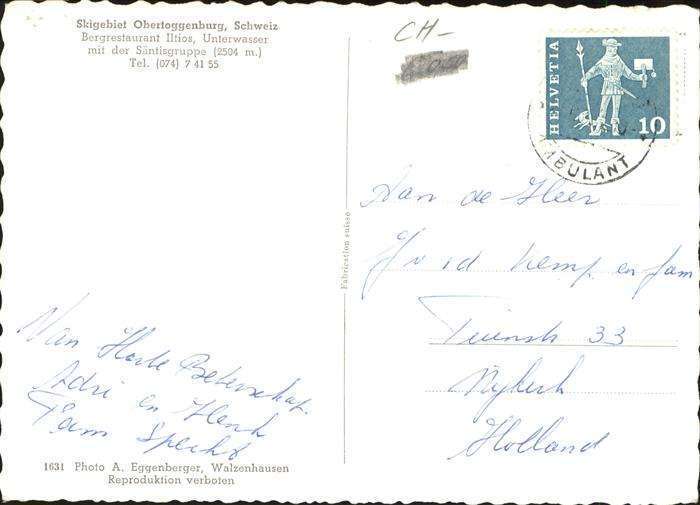 Skigebiet Obertoggenburg, Schweiz
Bergrestaurant Iltios, Unterwasser
mit der Säntisgruppe (2504 m.)
Tel. (074) 7 41 55
CH-
HELVETIA
10
AMBULANT
Aan de Heer
J v id Kemp en fam
33
Nykerk
Holland
Fabrication suisse
Van Harte Beterschap
Adri en Henk
Fam Specht
1631 Photo A. Eggenberger, Walzenhausen
Reproduktion verboten